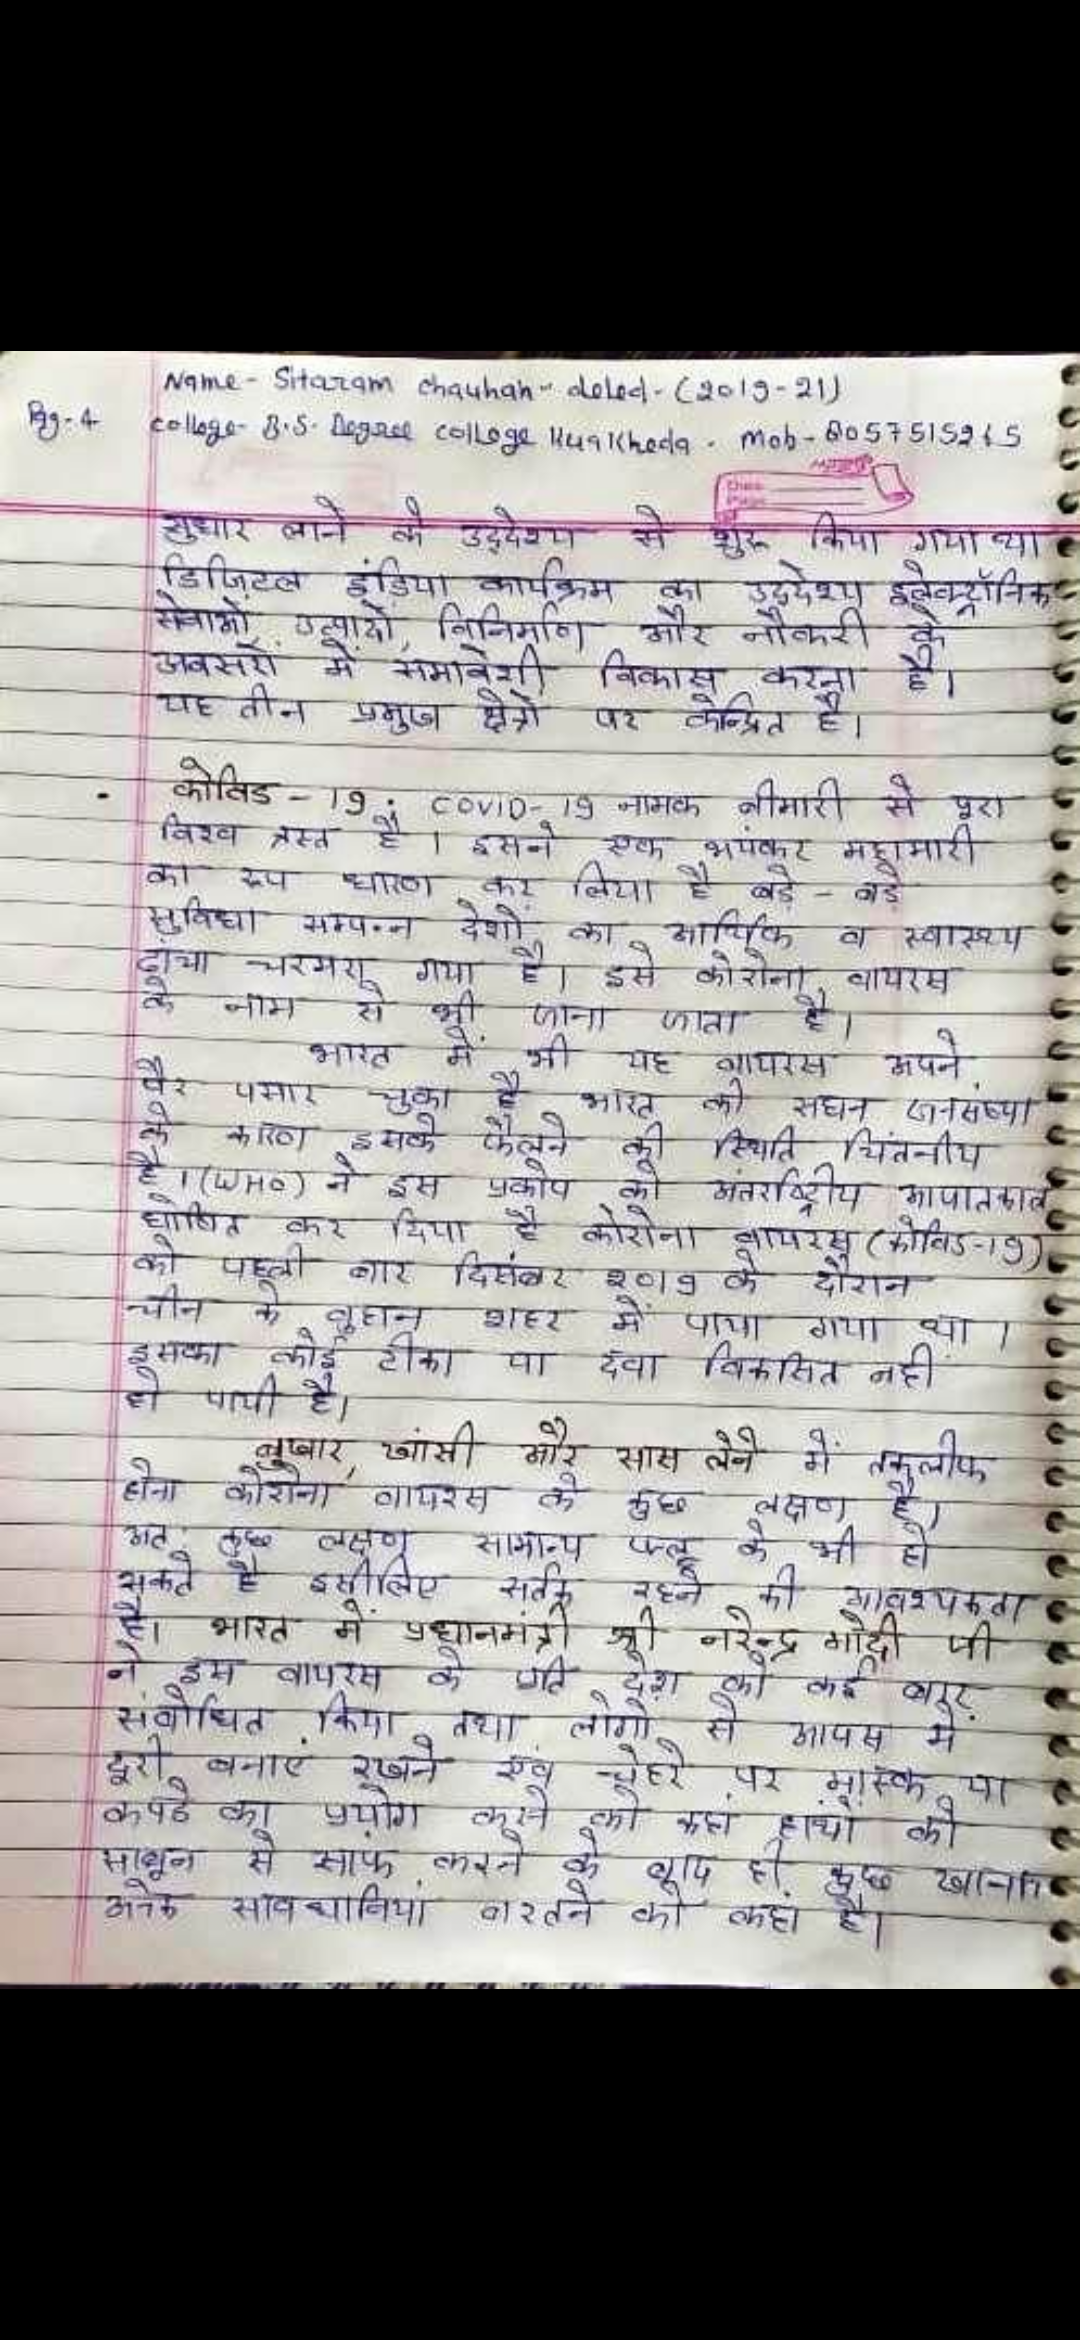 Name - Sitaram Chauhan - deled - (2019-21)
Pg-4 college - B.S. Degree college Kuakheda. Mob - 8057515215
सुधार लाने के उद्देश्य से शुरू किया गया था
डिजिटल इंडिया कार्यक्रम का उद्देश्य इलेक्ट्रॉनिक
सेवाओं, उत्पादों, विनिर्माण और नौकरी के
अवसरों में समावेशी विकास करना है।
यह तीन प्रमुख क्षेत्रों पर केन्द्रित है।
. कोविड - 19 : COVID-19 नामक बीमारी से पूरा
विश्व त्रस्त है । इसने एक भयंकर महामारी
का रूप धारण कर लिया है बड़े - बड़े
सुविधा सम्पन्न देशों का आर्थिक व स्वास्थ्य
ढ़ांचा चरमरा गया है। इसे कोरोना वायरस
के नाम से भी जाना जाता है।
भारत में भी यह वायरस अपने
पैर पसार चुका है भारत की सघन जनसंख्या
के कारण इसके फैलने की स्थिति चिंतनीय
है। (WHO) ने इस प्रकोप को अंतर्राष्ट्रीय आपातकाल
घोषित कर दिया है कोरोना वायरस (कोविड-19)
को पहली बार दिसंबर 2019 के दौरान
चीन के वुहान शहर में पाया गया था ।
इसका कोई टीका या दवा विकसित नहीं
हो पायी है।
बुखार, खांसी और सास लेने में तकलीफ
होना कोरोना वायरस के कुछ लक्षण है।
अतः कुछ लक्षण सामान्य फ्लू के भी हो
सकते है इसीलिए सर्तक रहने की आवश्यकता
है। भारत में प्रधानमंत्री श्री नरेन्द्र मोदी जी
ने इस वायरस के प्रति देश को कई बार
संबोधित किया तथा लोगों से आपस में
दूरी बनाएं रखने एवं चेहरे पर मास्क या
कपडे का प्रयोग करने को कहां हाथों को
साबुन से साफ करने के बाद ही कुछ खाना
अनेक सावधानियां बरतने को कहां है।